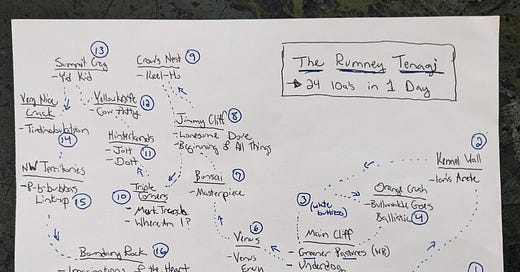 The Rumney Tenagi
→ 24 10a's in 1 Day
13
Summit Crag
- Yd Kid
Crow's Nest 9
- Keel-Ho
Very Nice
Crack
- Tintinabulation
14
Yellowknife 12
- Cow Patty
Hinterlands
- Jolt 11
- Dolt
Jimmy Cliff 8
- Lonesome Dove
- Beginning of All Things
2
Kennel Wall
- Ian's Arete
NW Territories
- P-b-bubbas
Linkup 15
10 Triple
Corners
- Mark Trench
- Where Am I?
Bonsai 7
- Masterpiece
3
(white
buttress)
Orange Crush
- Bullwinkle Goes
Ballistic 4
Main Cliff
- Greener Pastures (WB)
- Underdog
6
Venus
- Venus
Envy
Boundary Rock 16
- Imaginations of the Heart
1